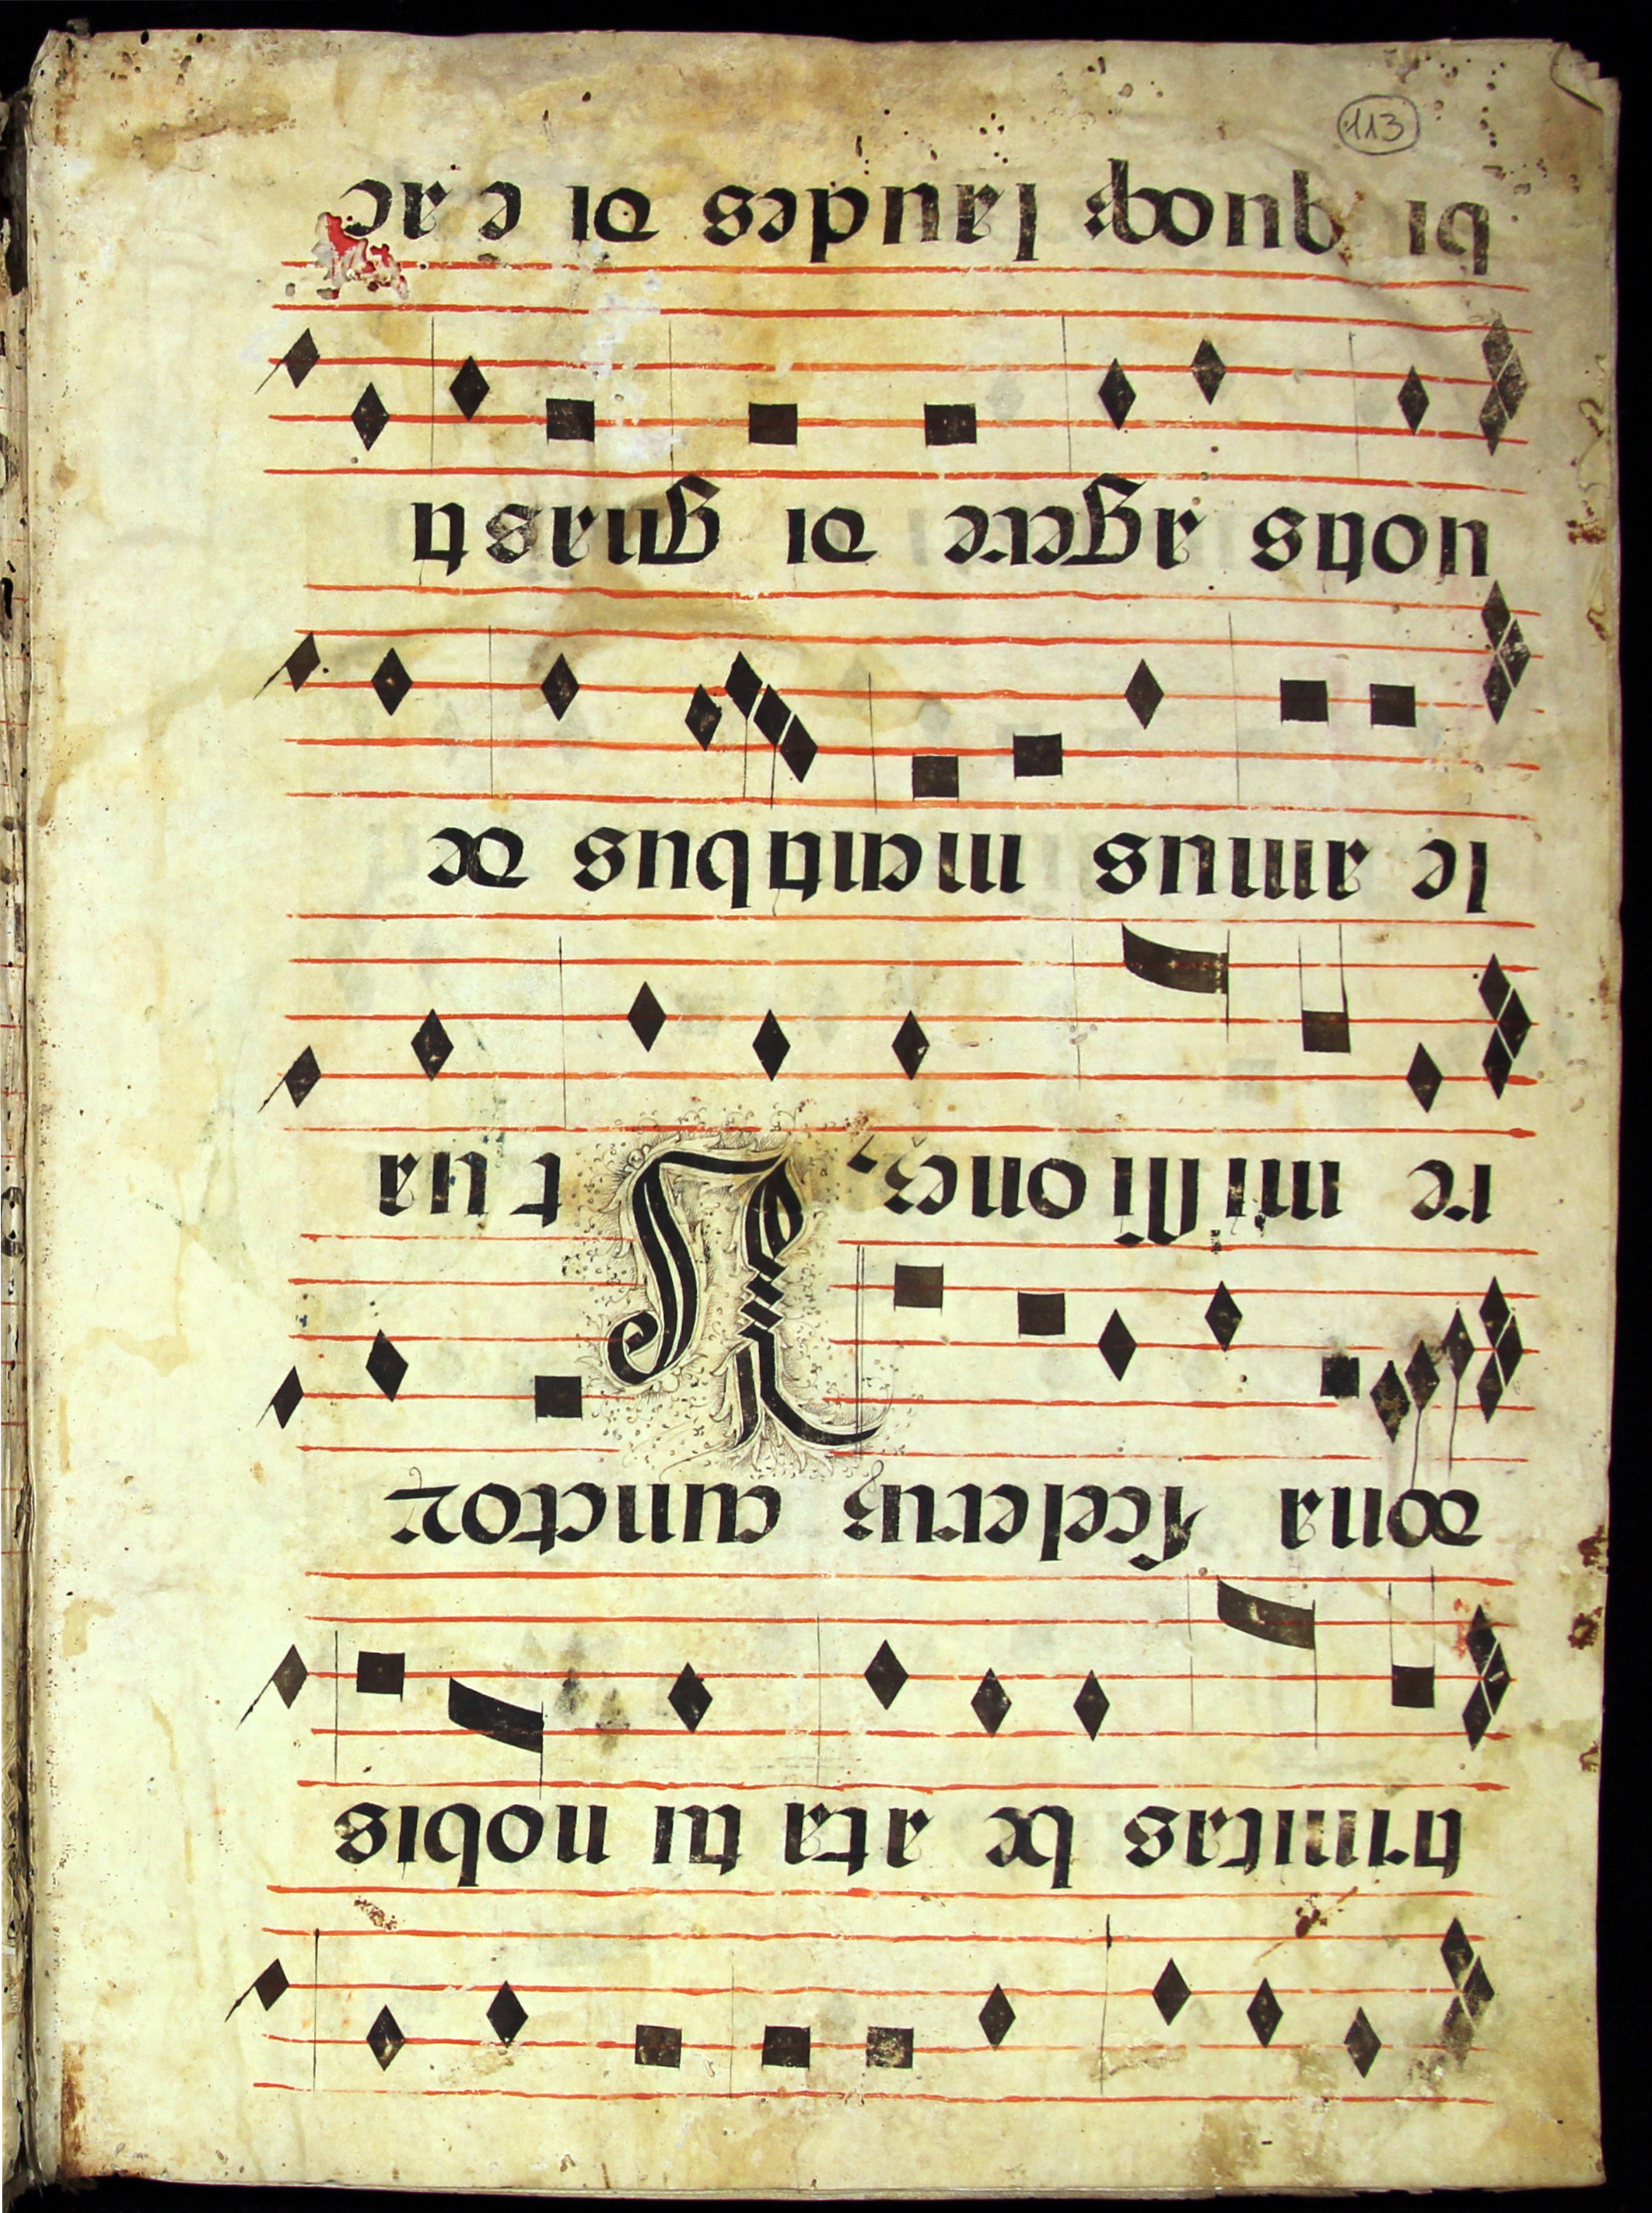 113
trinitas be ata tu nobis
dona sceleruꝫ cunctoꝝ
re missi oneꝫ, Vt ua
le amus mentibus de
uotis agere di gnas ti
bi quoqꝫ laudes di e ac